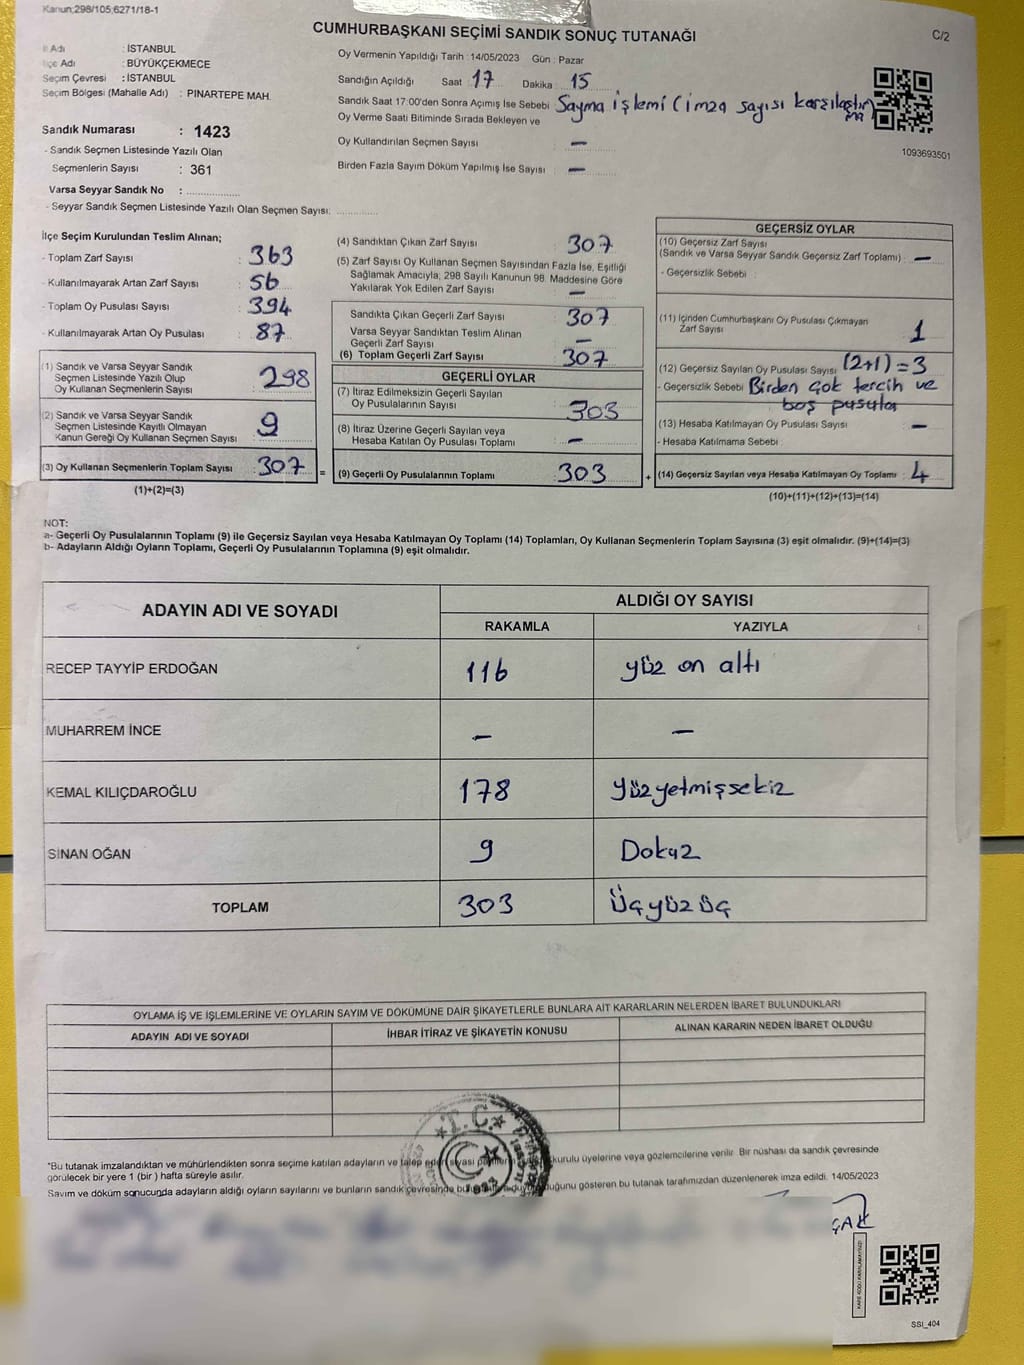 Kanun;298/105;6271/18-1
CUMHURBAŞKANI SEÇİMİ SANDIK SONUÇ TUTANAĞI
C/2
İl Adı : İSTANBUL
İlçe Adı : BÜYÜKÇEKMECE
Seçim Çevresi : İSTANBUL
Seçim Bölgesi (Mahalle Adı) : PINARTEPE MAH.
Sandık Numarası : 1423
- Sandık Seçmen Listesinde Yazılı Olan
Seçmenlerin Sayısı : 361
Varsa Seyyar Sandık No : ..................
- Seyyar Sandık Seçmen Listesinde Yazılı Olan Seçmen Sayısı: ..............
Oy Vermenin Yapıldığı Tarih : 14/05/2023 Gün : Pazar
Sandığın Açıldığı Saat 17 Dakika 15
Sandık Saat 17:00'den Sonra Açımış İse Sebebi Sayma işlemi (imza sayısı karşılaştırma)
Oy Verme Saati Bitiminde Sırada Bekleyen ve
Oy Kullandırılan Seçmen Sayısı : –
Birden Fazla Sayım Döküm Yapılmış İse Sayısı : –
1093693501
İlçe Seçim Kurulundan Teslim Alınan;
- Toplam Zarf Sayısı : 363
- Kullanılmayarak Artan Zarf Sayısı : 56
- Toplam Oy Pusulası Sayısı : 394
- Kullanılmayarak Artan Oy Pusulası : 87
(1) Sandık ve Varsa Seyyar Sandık
Seçmen Listesinde Yazılı Olup
Oy Kullanan Seçmenlerin Sayısı : 298
(2) Sandık ve Varsa Seyyar Sandık
Seçmen Listesinde Kayıtlı Olmayan
Kanun Gereği Oy Kullanan Seçmen Sayısı : 9
(3) Oy Kullanan Seçmenlerin Toplam Sayısı : 307 =
(1)+(2)=(3)
(4) Sandıktan Çıkan Zarf Sayısı : 307
(5) Zarf Sayısı Oy Kullanan Seçmen Sayısından Fazla İse, Eşitliği
Sağlamak Amacıyla; 298 Sayılı Kanunun 98. Maddesine Göre
Yakılarak Yok Edilen Zarf Sayısı : –
Sandıkta Çıkan Geçerli Zarf Sayısı : 307
Varsa Seyyar Sandıktan Teslim Alınan
Geçerli Zarf Sayısı : –
(6) Toplam Geçerli Zarf Sayısı : 307
GEÇERLİ OYLAR
(7) İtiraz Edilmeksizin Geçerli Sayılan
Oy Pusulalarının Sayısı : 303
(8) İtiraz Üzerine Geçerli Sayılan veya
Hesaba Katılan Oy Pusulası Toplamı : –
(9) Geçerli Oy Pusulalarının Toplamı : 303 +
GEÇERSİZ OYLAR
(10) Geçersiz Zarf Sayısı
(Sandık ve Varsa Seyyar Sandık Geçersiz Zarf Toplamı) : –
- Geçersizlik Sebebi :
(11) İçinden Cumhurbaşkanı Oy Pusulası Çıkmayan
Zarf Sayısı : 1
(12) Geçersiz Sayılan Oy Pusulası Sayısı : (2+1)=3
- Geçersizlik Sebebi Birden çok tercih ve
boş pusula
(13) Hesaba Katılmayan Oy Pusulası Sayısı : –
- Hesaba Katılmama Sebebi :
(14) Geçersiz Sayılan veya Hesaba Katılmayan Oy Toplamı : 4
(10)+(11)+(12)+(13)=(14)
NOT:
a- Geçerli Oy Pusulalarının Toplamı (9) ile Geçersiz Sayılan veya Hesaba Katılmayan Oy Toplamı (14) Toplamları, Oy Kullanan Seçmenlerin Toplam Sayısına (3) eşit olmalıdır. (9)+(14)=(3)
b- Adayların Aldığı Oyların Toplamı, Geçerli Oy Pusulalarının Toplamına (9) eşit olmalıdır.
ADAYIN ADI VE SOYADI
ALDIĞI OY SAYISI
RAKAMLA YAZIYLA
RECEP TAYYİP ERDOĞAN 116 yüz on altı
MUHARREM İNCE – –
KEMAL KILIÇDAROĞLU 178 Yüzyetmişsekiz
SİNAN OĞAN 9 Dokuz
TOPLAM 303 Üçyüzüç
OYLAMA İŞ VE İŞLEMLERİNE VE OYLARIN SAYIM VE DÖKÜMÜNE DAİR ŞİKAYETLERLE BUNLARA AİT KARARLARIN NELERDEN İBARET BULUNDUKLARI
ADAYIN ADI VE SOYADI İHBAR İTİRAZ VE ŞİKAYETİN KONUSU ALINAN KARARIN NEDEN İBARET OLDUĞU
T.C.
*Bu tutanak imzalandıktan ve mühürlendikten sonra seçime katılan adayların ve talep eden siyasi kurulu üyelerine veya gözlemcilerine verilir. Bir nüshası da sandık çevresinde
görülecek bir yere 1 (bir ) hafta süreyle asılır.
Sayım ve döküm sonucunda adayların aldığı oyların sayılarını ve bunların sandık çevresinde duğunu gösteren bu tutanak tarafımızdan düzenlenerek imza edildi. 14/05/2023
SSI_404